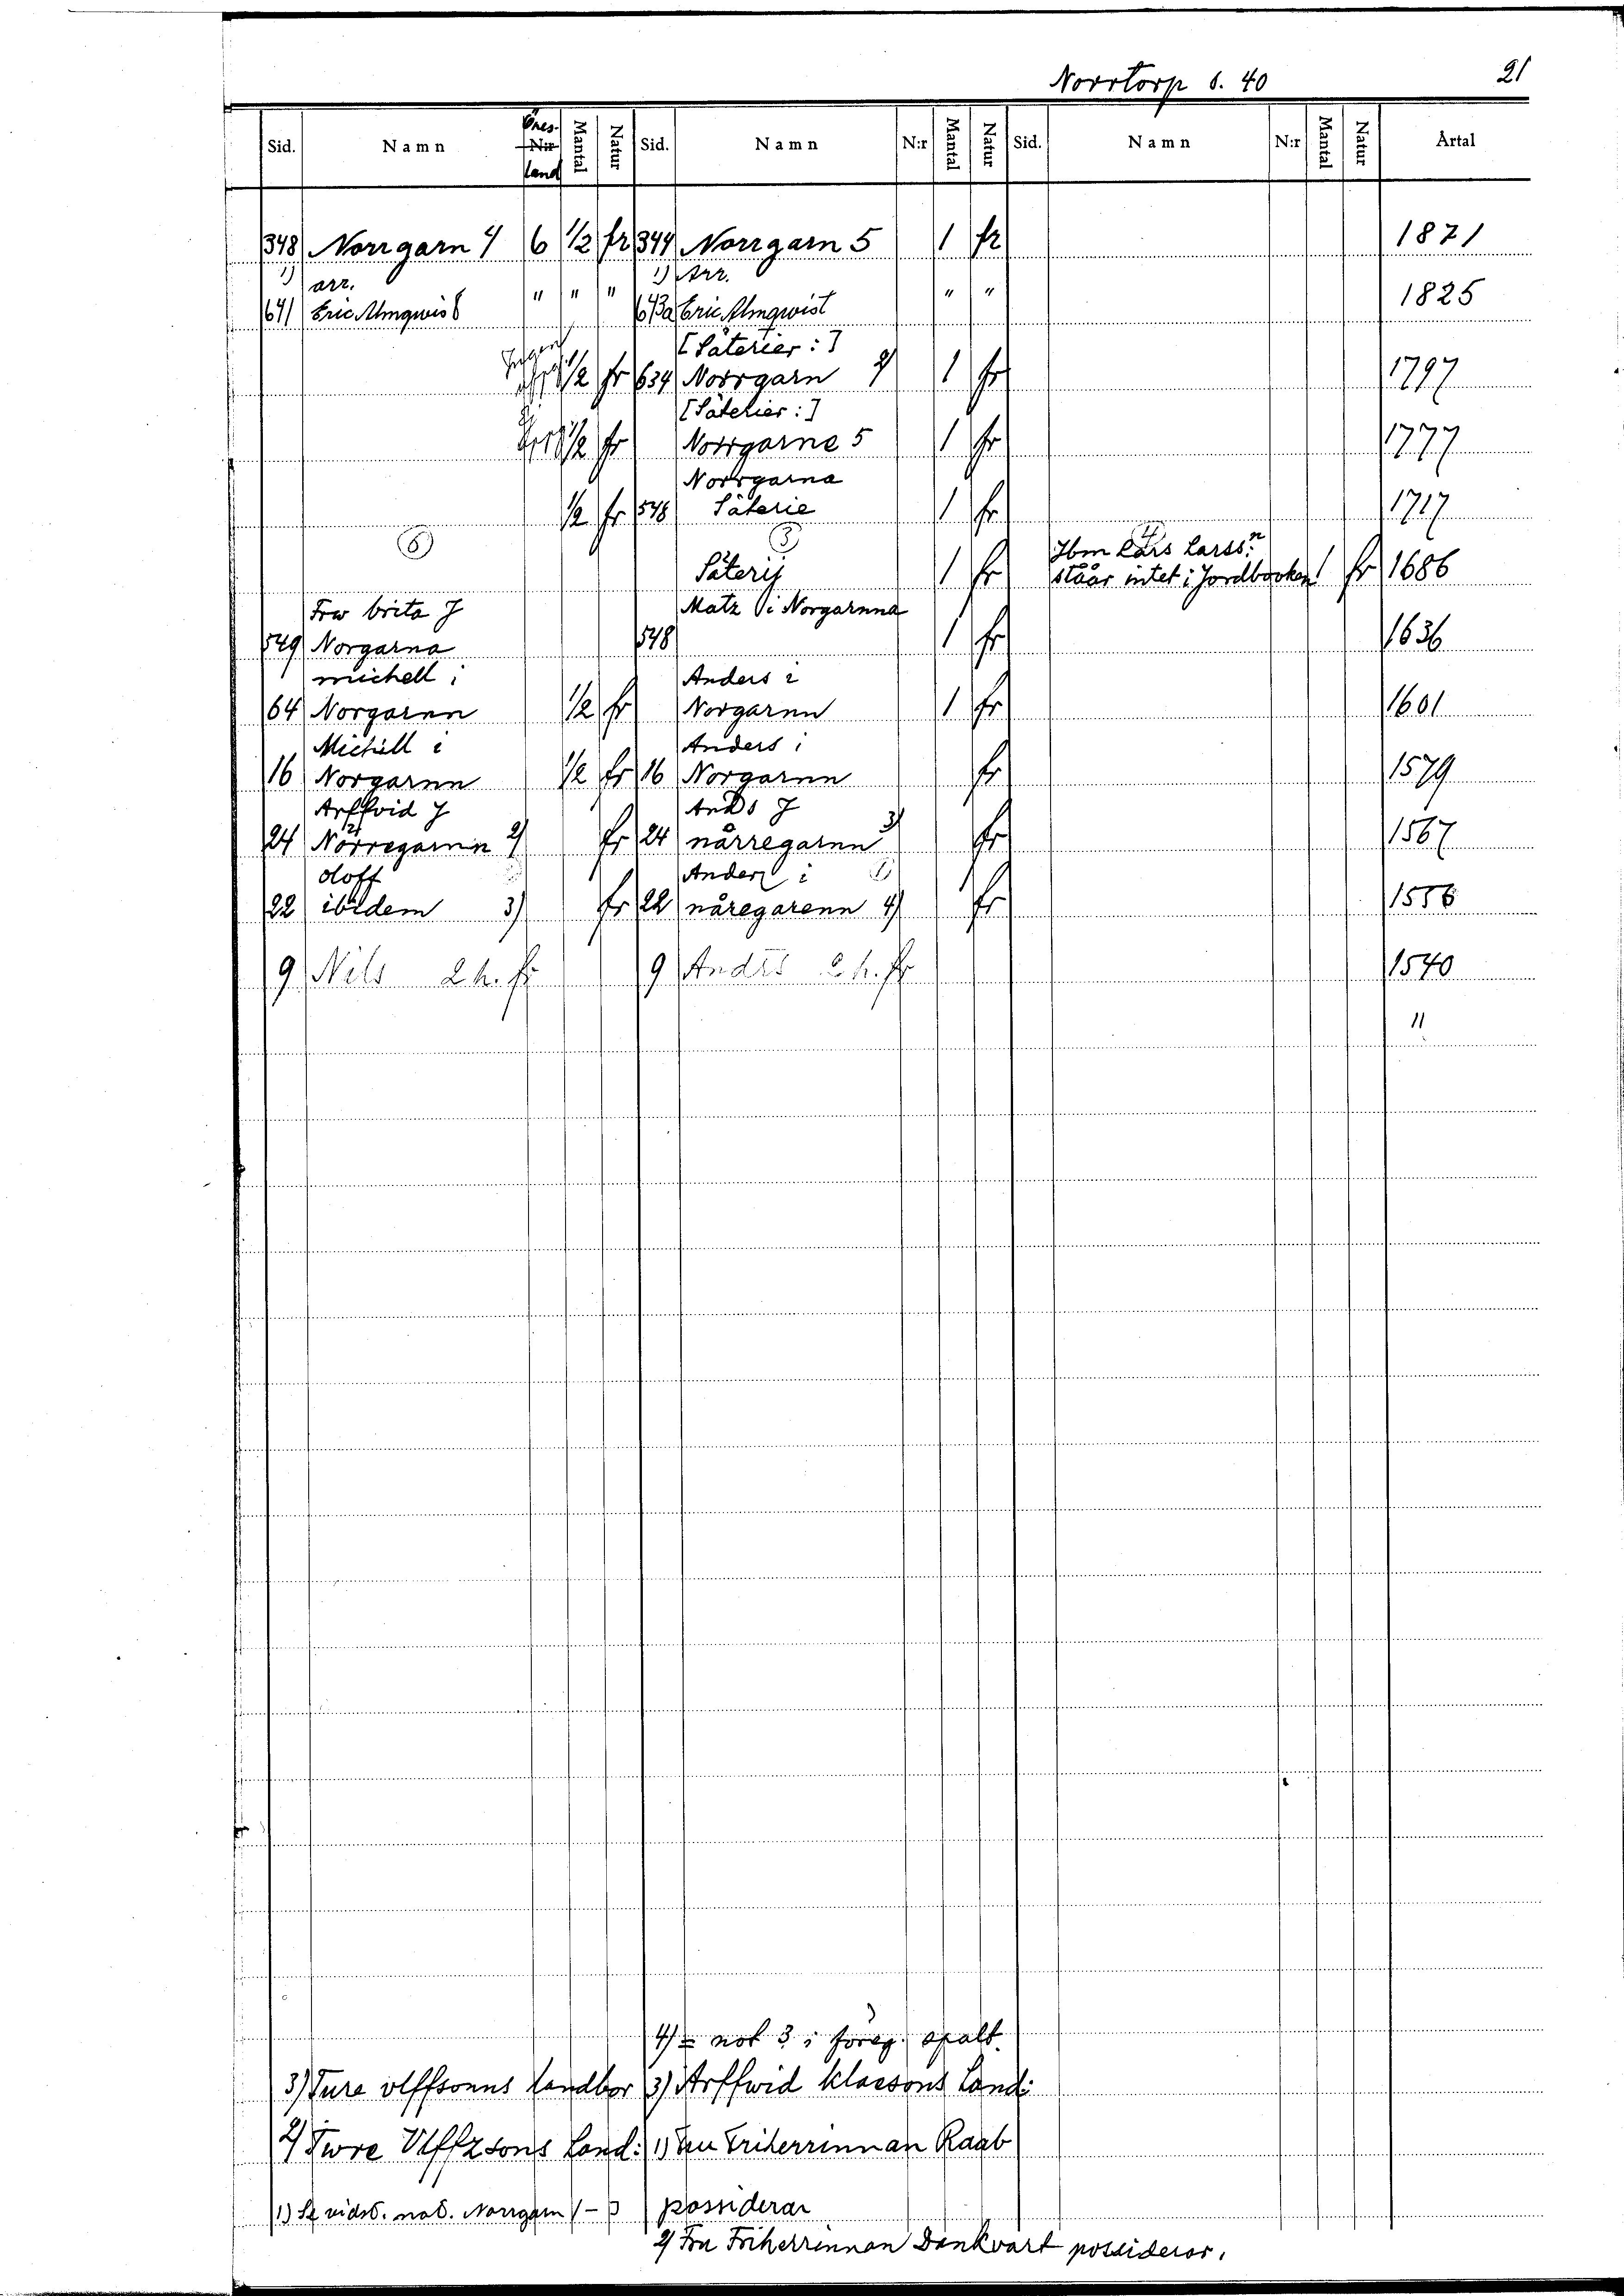 Norrtorp s. 40 21
Sid. Namn Öres- N:r land Mantal Natur Sid. Namn N:r Mantal Natur Sid. Namn N:r Mantal Natur Årtal
348 Norrgarn 4 6 1/2 fr 344 Norrgarn 5 1 fr 1871
1) arr. 1) Arr.
641 Eric Almqwist " " " 643a Eric Almqwist " " 1825
[Säterier:]
1/2 fr 634 Norrgarn 2) 1 fr 1797
[Säterier:]
1/2 fr Norrgarne 5 1 fr 1777
Norrgarna
1/2 fr 548 Säterie 1 fr 1717
5 3 4
Ibm Lars Larss:n
Säterij 1 fr ståår intet i Jordbooken! fr 1686
Frw brita J Matz i Norgarnna
549 Norgarna 548 1 fr 1636
michell i Anders i
64 Norgarnn 1/2 fr Norgarnn 1 fr 1601
Michill i Anders i
16 Norgarnn 1/2 fr 16 Norgarnn fr 1579
Arffvid J Ands J
24 Nörregarnn 2) fr 24 nårregarnn 3) fr 1567
oloff Anderz i
22 ibidem 3) fr 22 nåregarenn 4) fr 1556
9 Nils 2 h. fr 9 Andrs 2 h. fr 1540
"
4) = not 3 i föreg. spalt.
3) Ture vlffsonns landbor 3) Arffwid klaesons Land:
2) Twre Vlffzsons Land: 1) Fru Friherrinnan Raab
1) Se vidst. not. Norrgarn 1-3 possiderar
2) Fru Friherrinnan Dankvart possiderar.